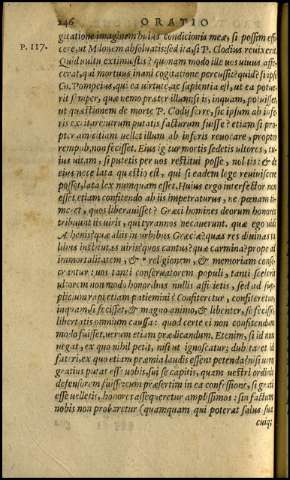 246 ORATIO
P. 117.
gitatione imaginem huius condicionis meæ, si possem effi
cere, ut Milonem absoluatis: sed ita, si P. Clodius reuixerit.
Quid uultu extimuistis? quonam modo ille uos uiuus affi-
cerat, qui mortuus inani cogitatione percußit? quid? si ipse
Cn. Pompeius, qui ea uirtute, ac sapientia est, ut ea potue-
rit semper, quæ nemo præter illum: si is, inquam, potuisset,
ut quæstionem de morte P. Clodij ferre, sic ipsum ab infe-
ris excitare: utrum putatis facturum fuisse? etiam si pro-
pter amicitiam uellet illum ab inferis reuocare, propter
remp. non fecisset. Eius igitur mortis sedetis ultores, cu-
ius uitam, si putetis per uos restitui posse, nolitis: & de
eius nece lata quæstio est, qui si eadem lege reuiuiscere
posset, lata lex nunquam esset. Huius ergo interfector
esset, etiam confitendo ab iis
impetraturus, ne pœnam ti-
meret, quos liberauisset? Græci homines deorum honores
tribuunt iis uiris, qui tyrannos necauerunt. quæ ego uidi
Athenis? quæ aliis in urbibus Græciæ? quas res diuinas ta-
libus institutas uiris? quos cantus? quæ carmina? prope ad
immortalitatem, & religionem, & memoriam conse-
crantur: uos tanti conseruatorem populi, tanti sceleris
ultorem non modo honoribus nullis afficietis, sed ad sup-
plicium rapi etiam patiemini? Confiteretur, confiteretur,
inquam, si fecisset, & magno animo, & libenter, se fecisse
libertatis omnium causa: quod certe ei non confitendum
modo fuisset, uerum etiam prædicandum. Etenim, si id non
negat, ex quo nihil petit, nisi ut ignoscatur; dubitaret id
fateri, ex quo etiam præmia laudis essent petenda? nisi uero
gratius putat esse uobis, sui se capitis, quam uestri ordinis
defensorem fuisse: cum præsertim in ea confessione, si grati
esse uelletis, honores assequeretur amplissimos: sin factum
uobis non probaretur (quamquam qui poterat salus sua
cuiq;